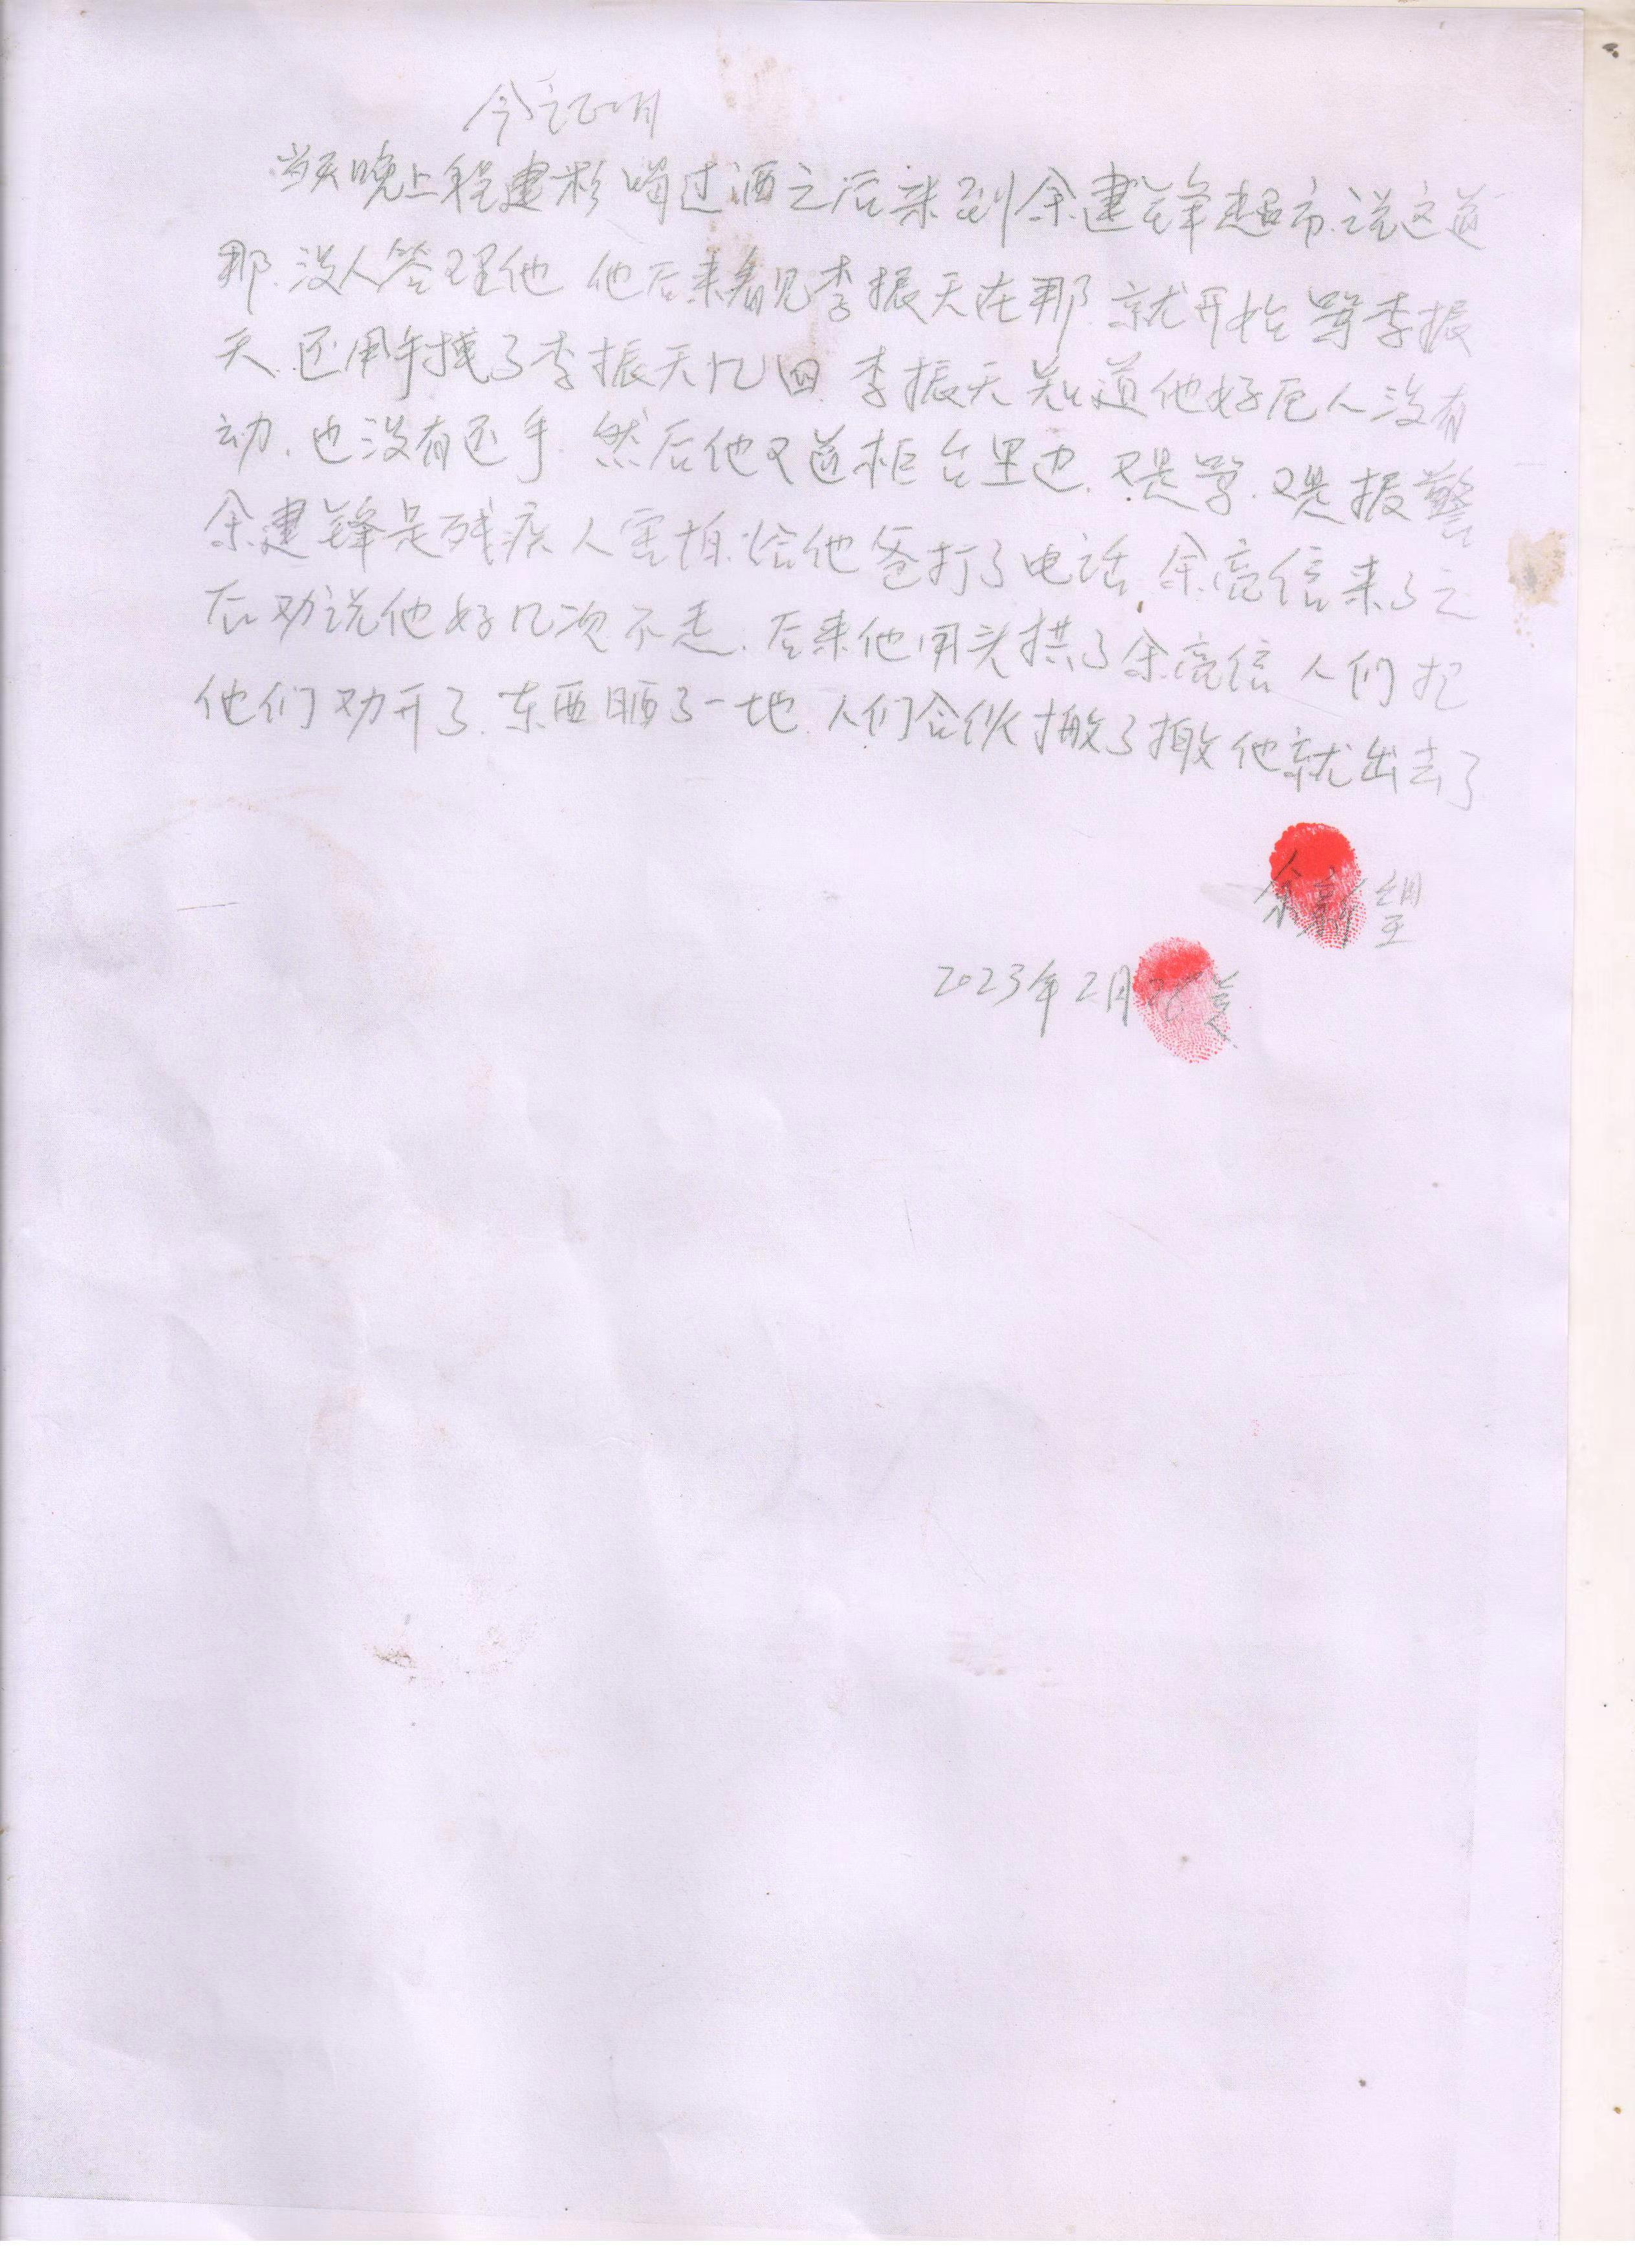 今证明
当天晚上程建彬喝过酒之后来到余建锋超市.说这道
那.没人答理他 他后来看见李振天在那 就开始骂李振
天.还用手拽了李振天几回.李振天知道他好厄人没有
动.也没有还手.然后他又道柜台里边.又是骂.又是报警
余建锋是残疾人害怕.给他爸打了电话.余亮信来了之
后劝说他好几次不走.后来他用头拱了余亮信 人们把
他们劝开了.东西晒了一地.人们合伙搬了搬他就出去了
余新
2023年2月